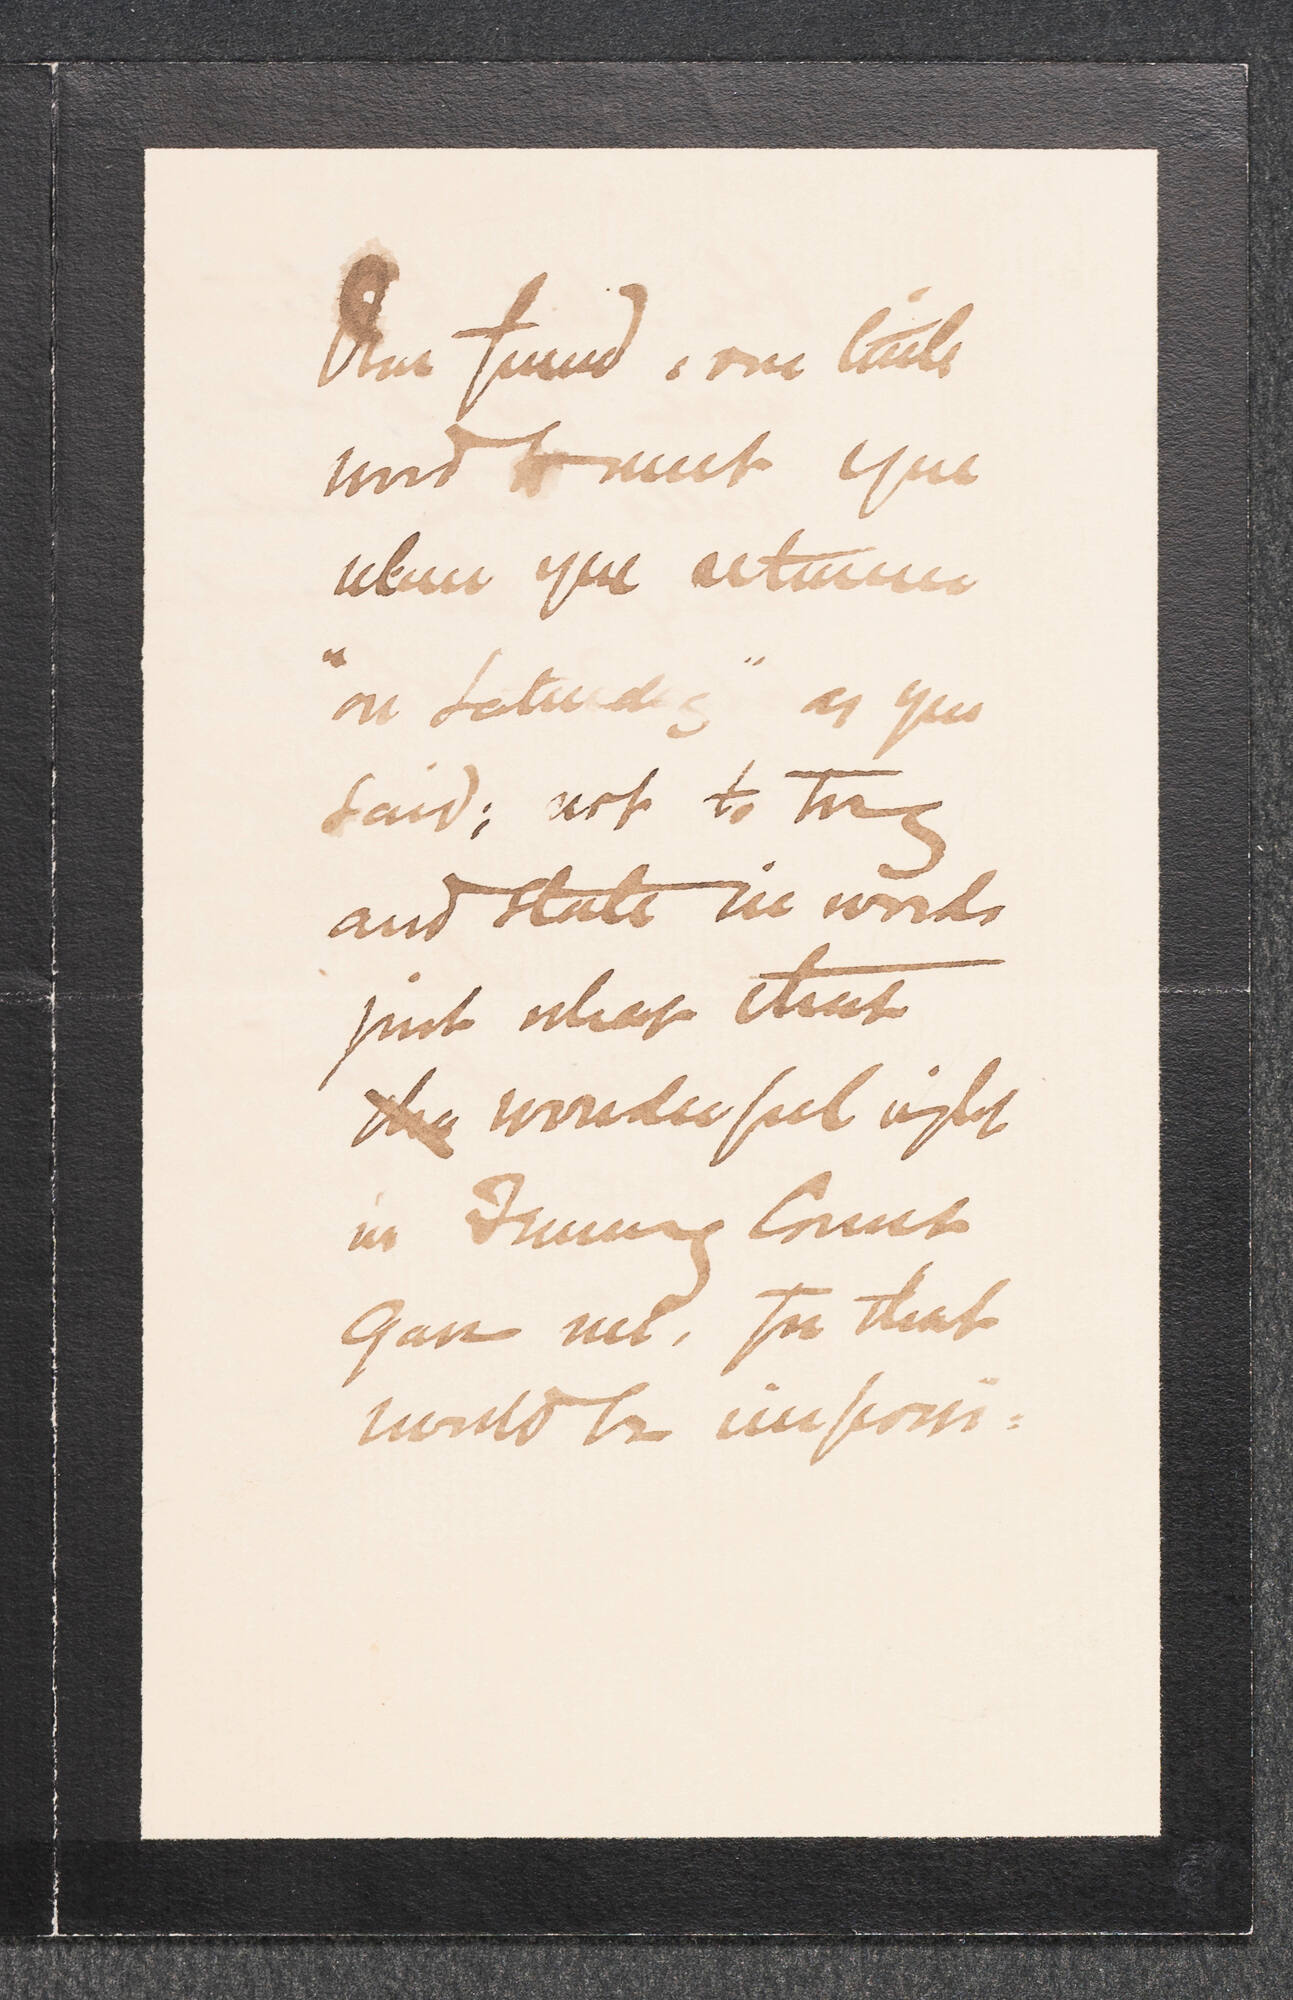 Dear friend, one little
word to meet you
when you return
"on Saturday" as you
said; not to try
and state in words
just what that
the wonderful night
in Fenway Court
gave me, for that
would be impossi=